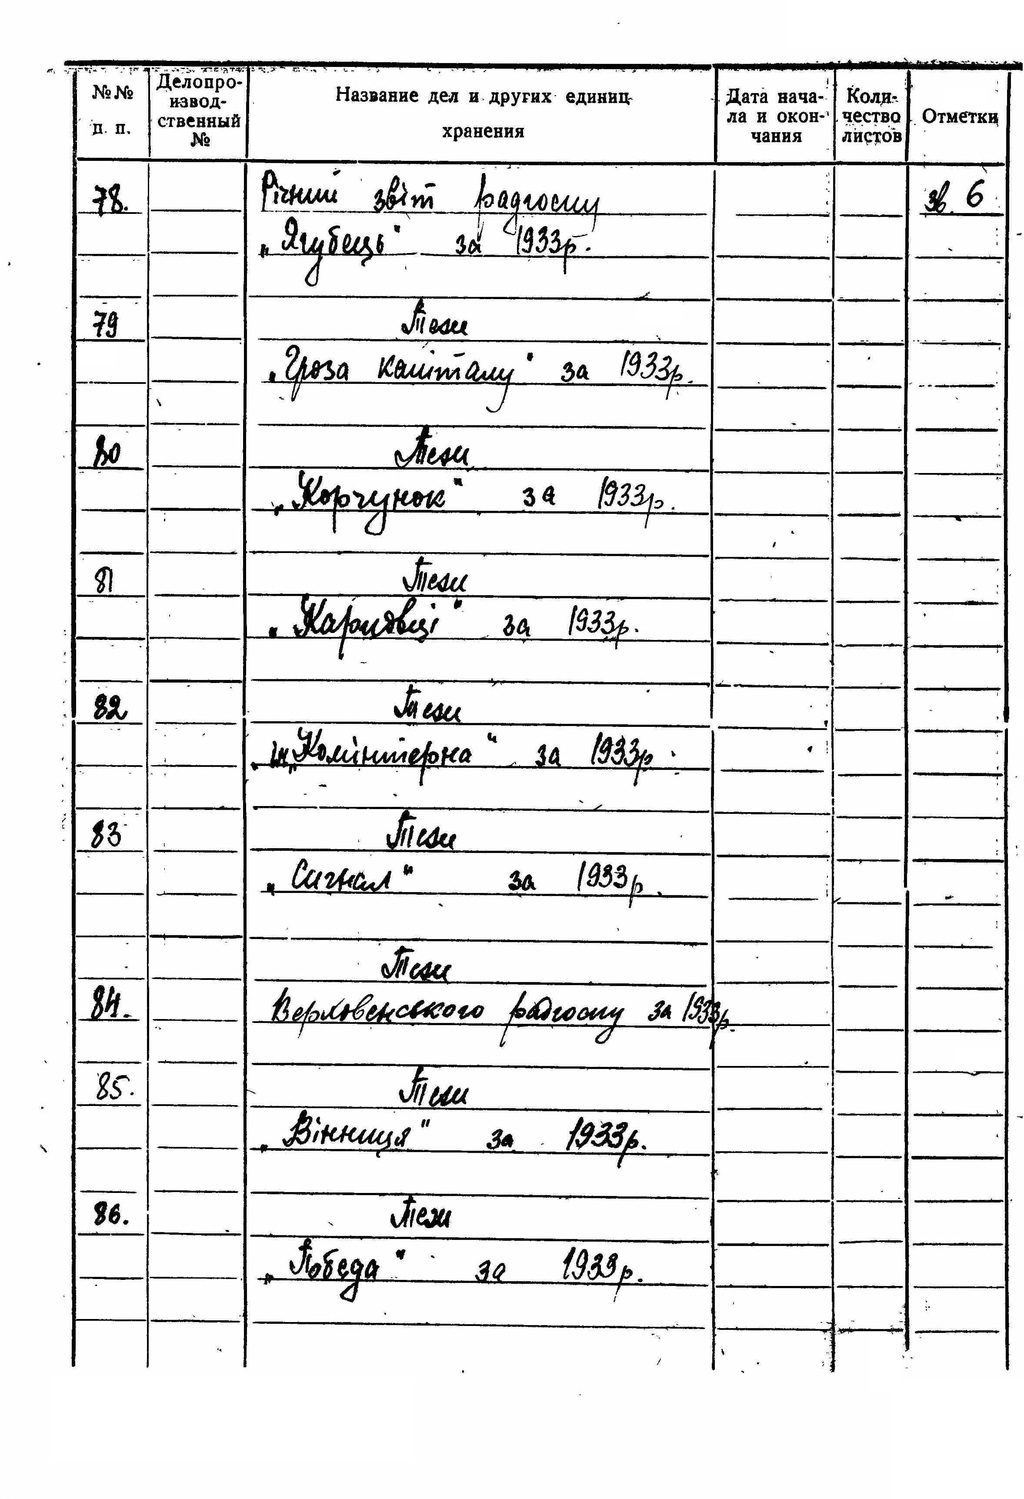 №№ п. п.
Делопроизводственный №
Название дел и других единиц хранения
Дата начала и окончания
Количество листов
Отметки
78. Річний звіт радгоспу зв. 6
„Ягубець" за 1933р.
79 Тези
„Гроза капіталу" за 1933р.
80 Тези
„Корчунок" за 1933р.
81 Тези
за 1933р.
82 Тези
ім. „Комінтерна" за 1933р.
83 Тези
„Сигнал" за 1933р.
Тези
84. радгоспу за 1933р.
85. Тези
„Вінниця" за 1933р.
86. Тези
„Победа" за 1933р.